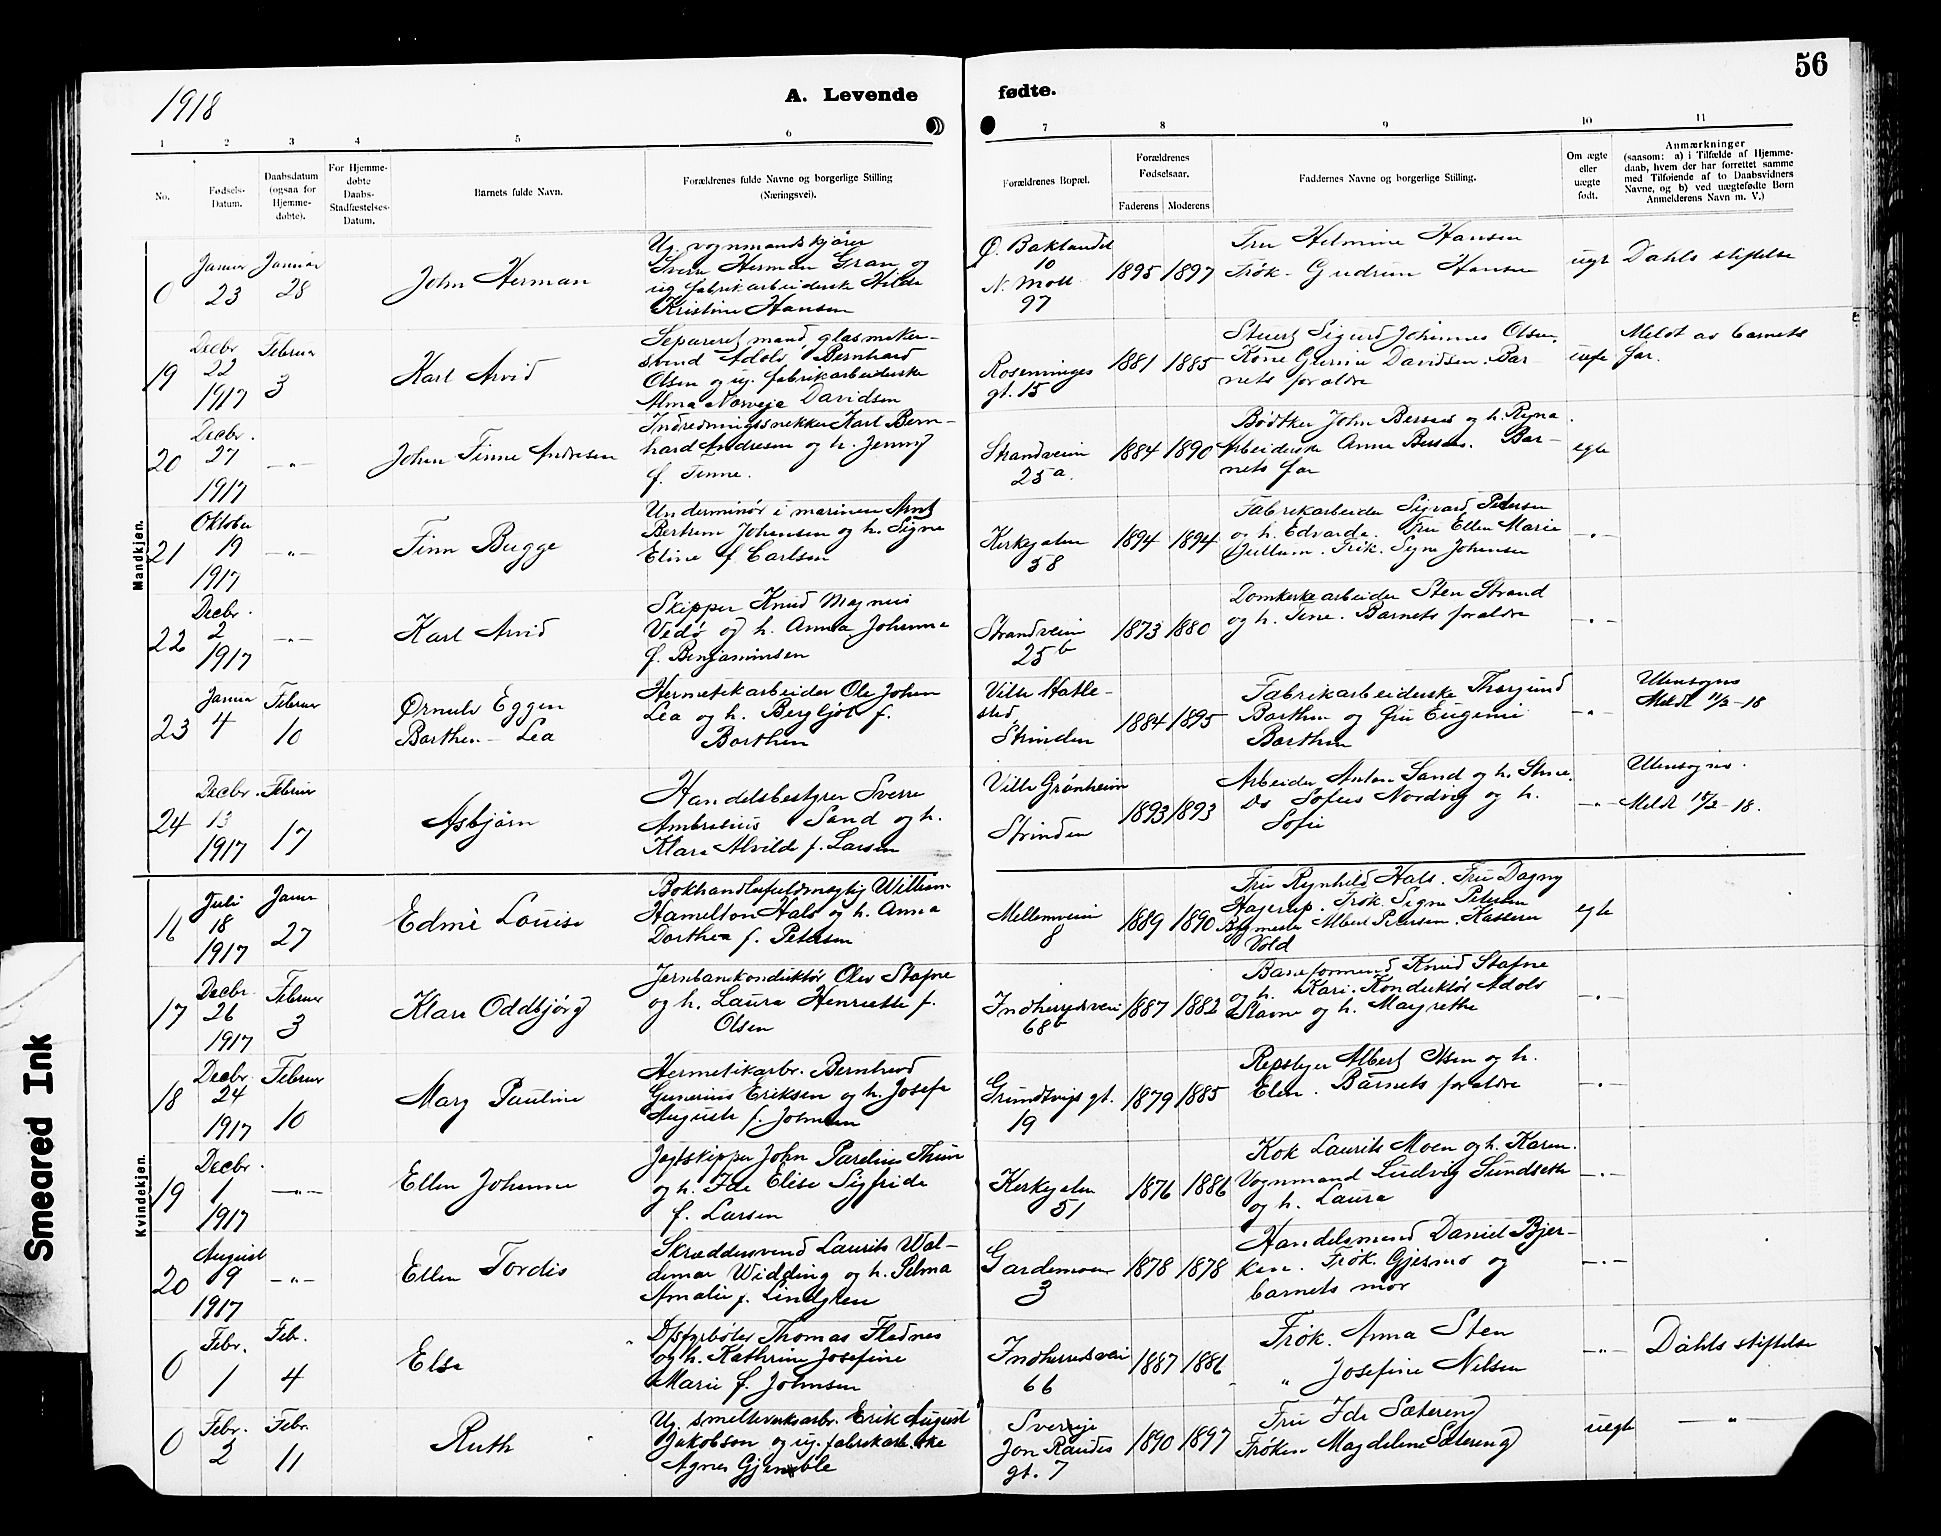 56
1918
A. Levende fødte.
1 2 3 4 5 6 7 8 9 10 11
No.
Fødsels-
Datum.
Daabsdatum
(ogsaa for
Hjemme-
døbte).
For Hjemme-
døbte
Daabs-
Stadfæstelses-
Datum.
Barnets fulde Navn.
Forældrenes fulde Navne og borgerlige Stilling
(Næringsvei).
Forældrenes Bopæl.
Forældrenes
Fødselsaar.
Faderens Moderens
Faddernes Navne og borgerlige Stilling.
Om ægte
eller
uægte
født.
Anmærkninger
(saasom: a) i Tilfælde af Hjemme-
daab, hvem der har forrettet samme
med Tilføiende af to Daabsvidners
Navne, og b) ved uægtefødte Børn
Anmelderens Navn m. V.)
Mandkjøn.
0
Januar
23
Januar
28
John Herman
Ug. vognmandskjører
Sverre Herman Gran og
ug fabrikarbeiderske Hilda
Kristine Hansen
Ø. Baklandet
10
N. Møll
97
1895 1897
Fru Helmine Hansen
Frøk. Gudrun Hansen
uegt
Dahls stiftelse
19
Decbr
22
1917
Februar
3
Karl Arvid
Separeret mand, glasmaker-
svend Adolv Bernhard
Olsen og ug. fabrikarbeiderske
Alma Norveja Davidsen
Rosenvinges
gt. 15
1881 1885
Stuert Sigurd Johannes Olsen,
Kone Gurine Davidsen. Bar-
nets forældre
uegte
Meldt av barnets
far.
20
Decbr.
27
1917
-"-
John Finne Andresen
Indredningssnekker Karl Bern-
hard Andresen og h. Jenny
f. Finne.
Strandveien
25a.
1884 1890
Bødtker John Bersaas og h. Ragna.
Arbeiderske Anna Bersaas. Bar-
nets far
egte
21
Oktober
19
1917
-"-
Finn Bugge
Underminør i marinen Arnt
Bertram Johansen og h. Signe
Eline f. Carlsen
Kirkegaten
58
1894 1894
Fabrikarbeider Sigvard Petersen
og h. Edvarda. Fru Ellen Marie
Gullum. Frøk. Signe Johansen
-"-
22
Decbr.
2
1917
-"-
Karl Arvid
Skipper Knud Magnus
Vedø og h. Anna Johanna
f. Benjaminsen
Strandveien
25b
1873 1880
Domkirkearbeider Sten Strand
og h. Tine. Barnets forældre
-"-
23
Januar
4
Februar
10
Ørnulv Eggen
Barthen-Lea
Hermetikarbeider Ole Johan
Lea og h. Bergljot f.
Barthen
Villa Hatle-
stad,
Strinden
1884 1895
Fabrikarbeiderske Thorgund
Barthen og Fru Eugenie
Barthen
-"-
Utensogns
Meldt 11/2-18
24
Decbr.
13
1917
Februar
17
Asbjørn
Handelsbestyrer Sverre
Ambrosius Sand og h.
Klara Alvilde f. Larsen
Villa Grønheim
Strinden
1893 1893
Arbeider Anton Sand og h. Stine.
Do Sofus Nordvig og h.
Sofie
-"-
Utensogns.
Meldt 18/2-18.
Kvindekjøn.
16
Juli
18
1917
Januar
27
Edmè Louise
Bokhandlerfuldmægtig William
Hamelton Hals og h. Anna
Dorthea f. Petersen
Mellemveien
8
1889 1890
Fru Ragnhild Hals. Fru Dagny
Hagerup. Frøk. Signe Petersen
Bygmester Albert Petersen. Kasserer
Vold
egte
17
Decbr.
26
1917
Februar
3
Klara Oddbjørg
Jernbanekonduktør Olav Stafne
og h. Laura Henriette f.
Olsen
Indherredsvei
68b
1887 1882
Baneformand Knud Stafne
og h. Kari. Konduktør Adolv
Stavne og h. Margrethe
-"-
18
Decbr.
24
1917
Februar
10
Mary Pauline
Hermetikarbr. Bernhard
Gunerius Eriksen og h. Josefa
Augusta f. Johnsen
Grundtvigs gt.
19
1879 1885
Repslager Albert Olsen og h.
Elen. Barnets forældre
-"-
19
Decbr.
1
1917
-"-
Ellen Johanne
Jagtskipper John Parelius Thun
og h. Ida Elise Sigfrida
f. Larsen
Kirkegaten
51
1876 1886
Kok Laurits Moen og h. Karen.
Vognmand Ludvig Sundseth
og h. Laura
-"-
20
August
19
1917
-"-
Ellen Tordis
Skræddersvend Laurits Wal-
demar Widding og h. Selma
Amalie f. Lindgren
Gardemoen
3
1878 1878
Handelsmand Daniel Bjer-
kan. Frøk. Gjesmo og
barnets mor
-"-
0
Febr.
1
Feb.
4
Else
Thomas Fladnes
og h. Kathrine Josefine
Marie f. Johnsen
Indherredsvei
66
1887 1886
Frøk. Anna Sten
" Josefine Nilsen
-"-
Dahls stiftelse
0
Febr.
2
Febr.
11
Ruth
Ug. smelteverksarbr. Erik August
Jakobson og ug. fabrikarb.ske
Agnes
Sverige
Jon Raudes
gt. 7
1890 1897
Fru Ida Sætereng
Frøken Magdelene Sætereng
uegte
-"-
Smeared Ink